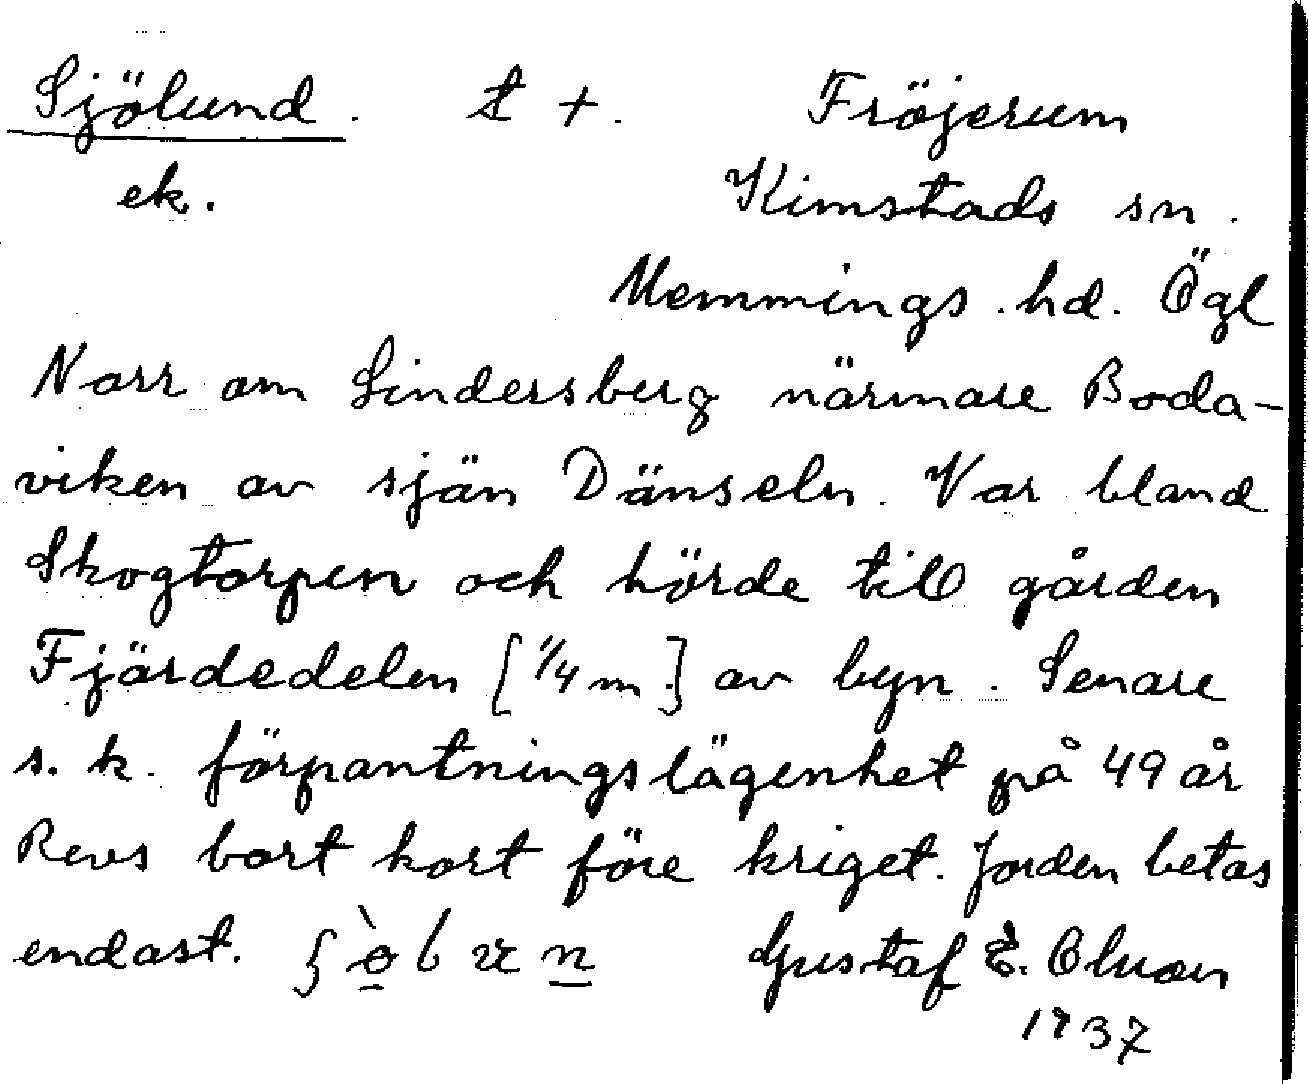 Sjölund. t +. Fröjerum
ek. Kimstads sn.
Memmings. hd. Ögl
Norr om Lindersberg närmare Boda-
viken av sjön Dänseln. Var bland
Skogtorpen och hörde till gården
Fjärdedelen [1/4 m] av byn. Senare
s. k. förpantningslägenhet på 49 år
Revs bort kort före kriget. Jorden betas
endast. Gustaf E. Olsson
1937